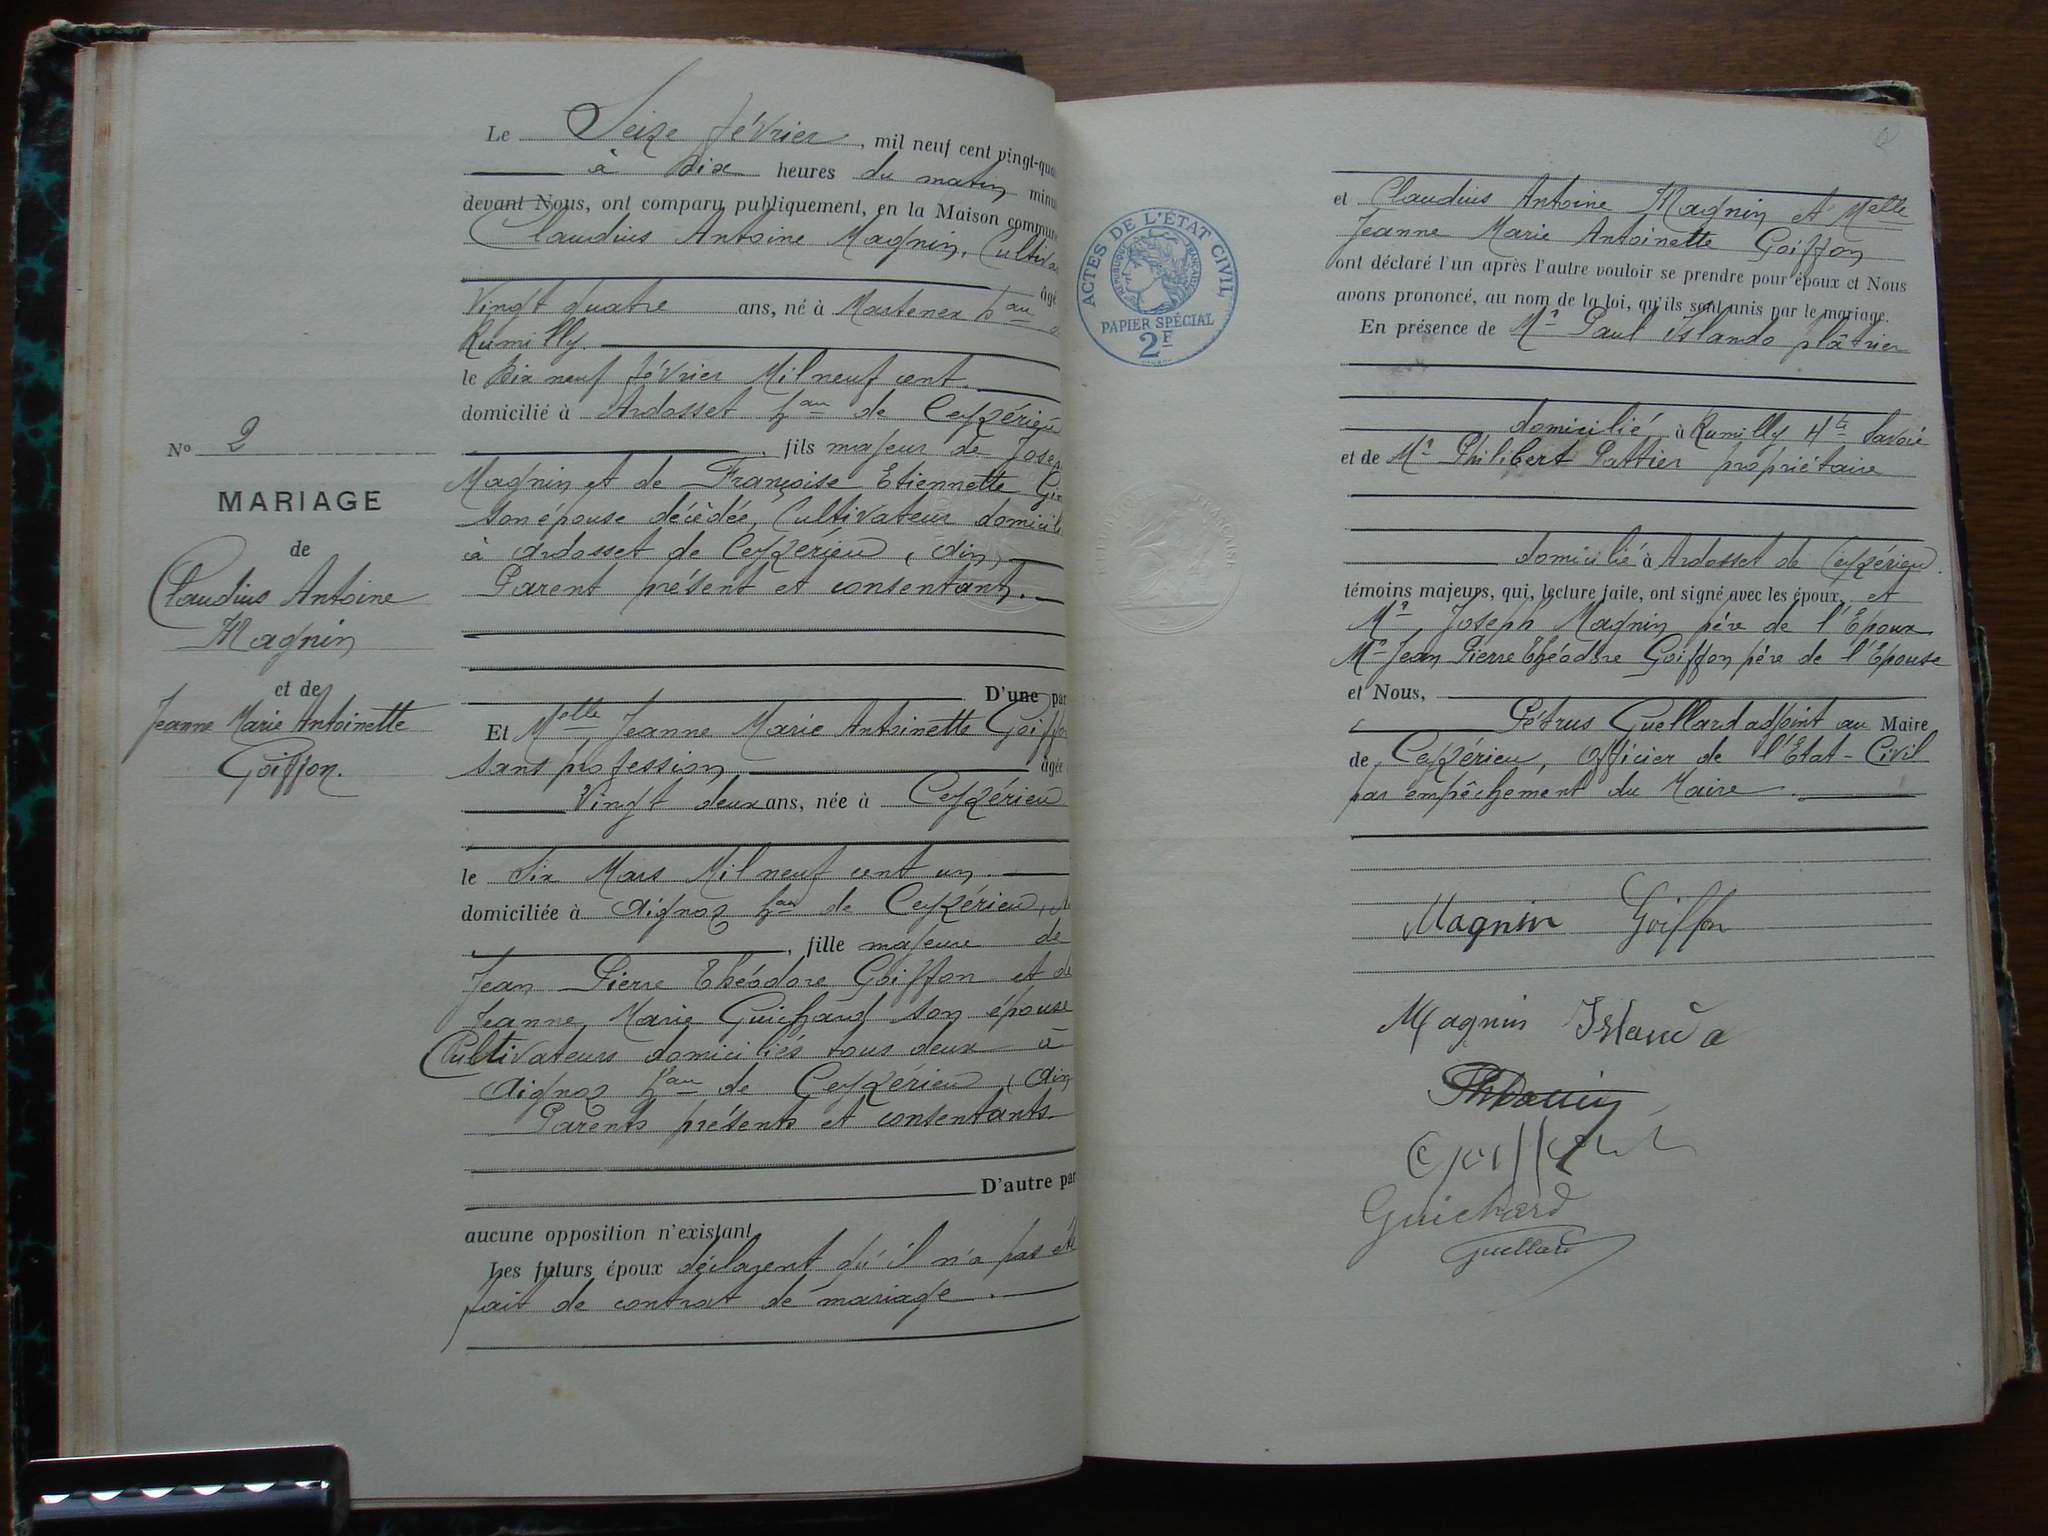 Le Seize février, mil neuf cent vingt-qua
à dix heures du matin minu
devant Nous, ont comparu publiquement, en la Maison commune
Claudius Antoine Magnin, Cultiva
âgé
Vingt quatre ans, né à Martenex hau
Rumilly.
le Dix neuf février Mil neuf cent.
domicilié à Ardosset hau de Ceyzérieu
, fils majeur de Jose
Magnin et de Françoise Etiennette
son épouse décédée, Cultivateur domicili
à Ardosset de Ceyzérieu, (Ain)
Parent présent et consentant.
D'une par
Et Melle Jeanne Marie Antoinette Goiffon
sans profession âgée
Vingt deux ans, née à Ceyzérieu
le Six Mars Mil neuf cent un.
domiciliée à Aignoz hau de Ceyzérieu,
, fille majeure de
Jean Pierre Théodore Goiffon et de
Jeanne Marie Guichard son épouse
Cultivateurs domiciliés tous deux à
Aignoz hau de Ceyzérieu, (Ain
Parents présents et consentants
D'autre par
aucune opposition n'existant
Les futurs époux déclarent qu'il n'a pas été
fait de contrat de mariage.
No 2
MARIAGE
de
Claudius Antoine
Magnin
et de
Jeanne Marie Antoinette
Goiffon.
ACTES DE L'ÉTAT CIVIL
RÉPUBLIQUE FRANÇAISE
PAPIER SPÉCIAL
2F
et Claudius Antoine Magnin et Melle
Jeanne Marie Antoinette Goiffon
ont déclaré l'un après l'autre vouloir se prendre pour époux et Nous
avons prononcé, au nom de la loi, qu'ils sont unis par le mariage.
En présence de Mr Paul Islando plâtrier
domicilié à Rumilly Hte Savoie
et de Mr Philibert Pattier propriétaire
domicilié à Ardosset de Ceyzérieu.
témoins majeurs, qui, lecture faite, ont signé avec les époux, et
Mr Joseph Magnin père de l'Epoux
Mr Jean Pierre Théodore Goiffon père de l'Epouse
et Nous,
Pétrus Guellard adjoint au Maire
de Ceyzérieu, Officier de l'Etat-Civil
par empêchement du Maire.
Magnin Goiffon
Magnin Islanda
Guichard
Guellard